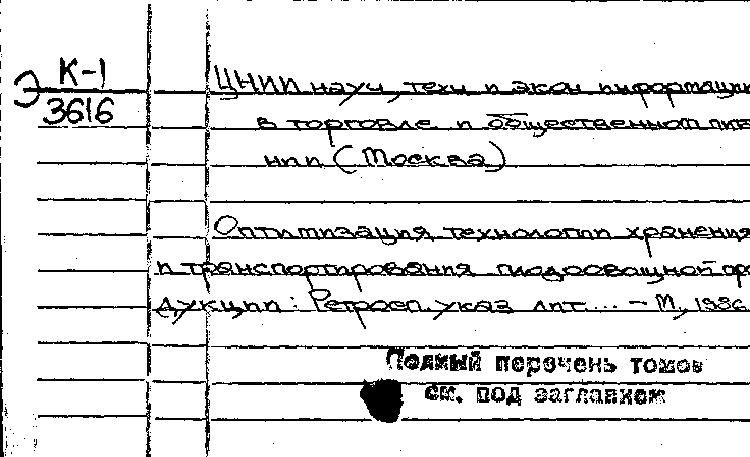 Э К-1
3616
ЦНИИ науч., техн. и экон. информации
в торговле и общественном пита
нии (Москва)
Оптимизация технологии хранения
и транспортирования плодоовощной про
дукции: Ретросп. указ. лит... - М., 1986
Полный перечень томов
см. под заглавием